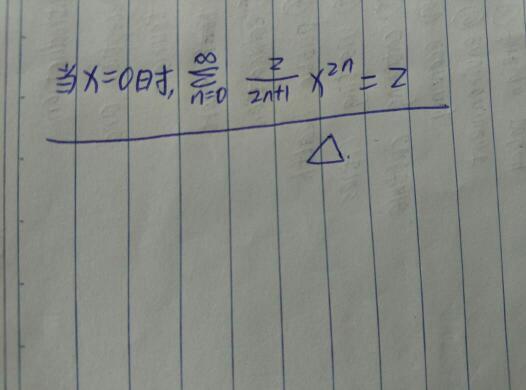 当x=0时, ∑_{n=0}^{∞} \frac{2}{2n+1} x^{2n} = 2
△.